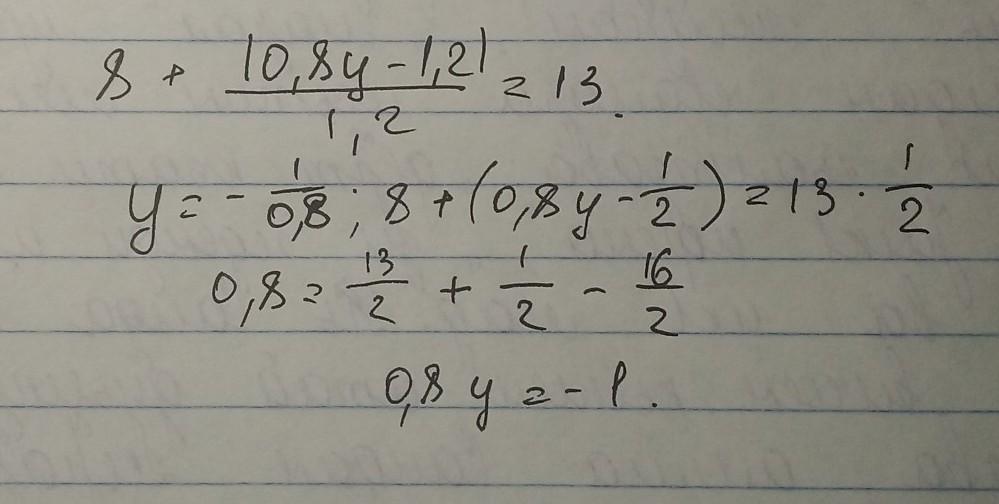 8 + |0,8y - 1,2| / 1,2 = 13.
y = - 1/0,8 ; 8 + (0,8y - 1/2) = 13 · 1/2
0,8 = 13/2 + 1/2 - 16/2
0,8 y = - 1.